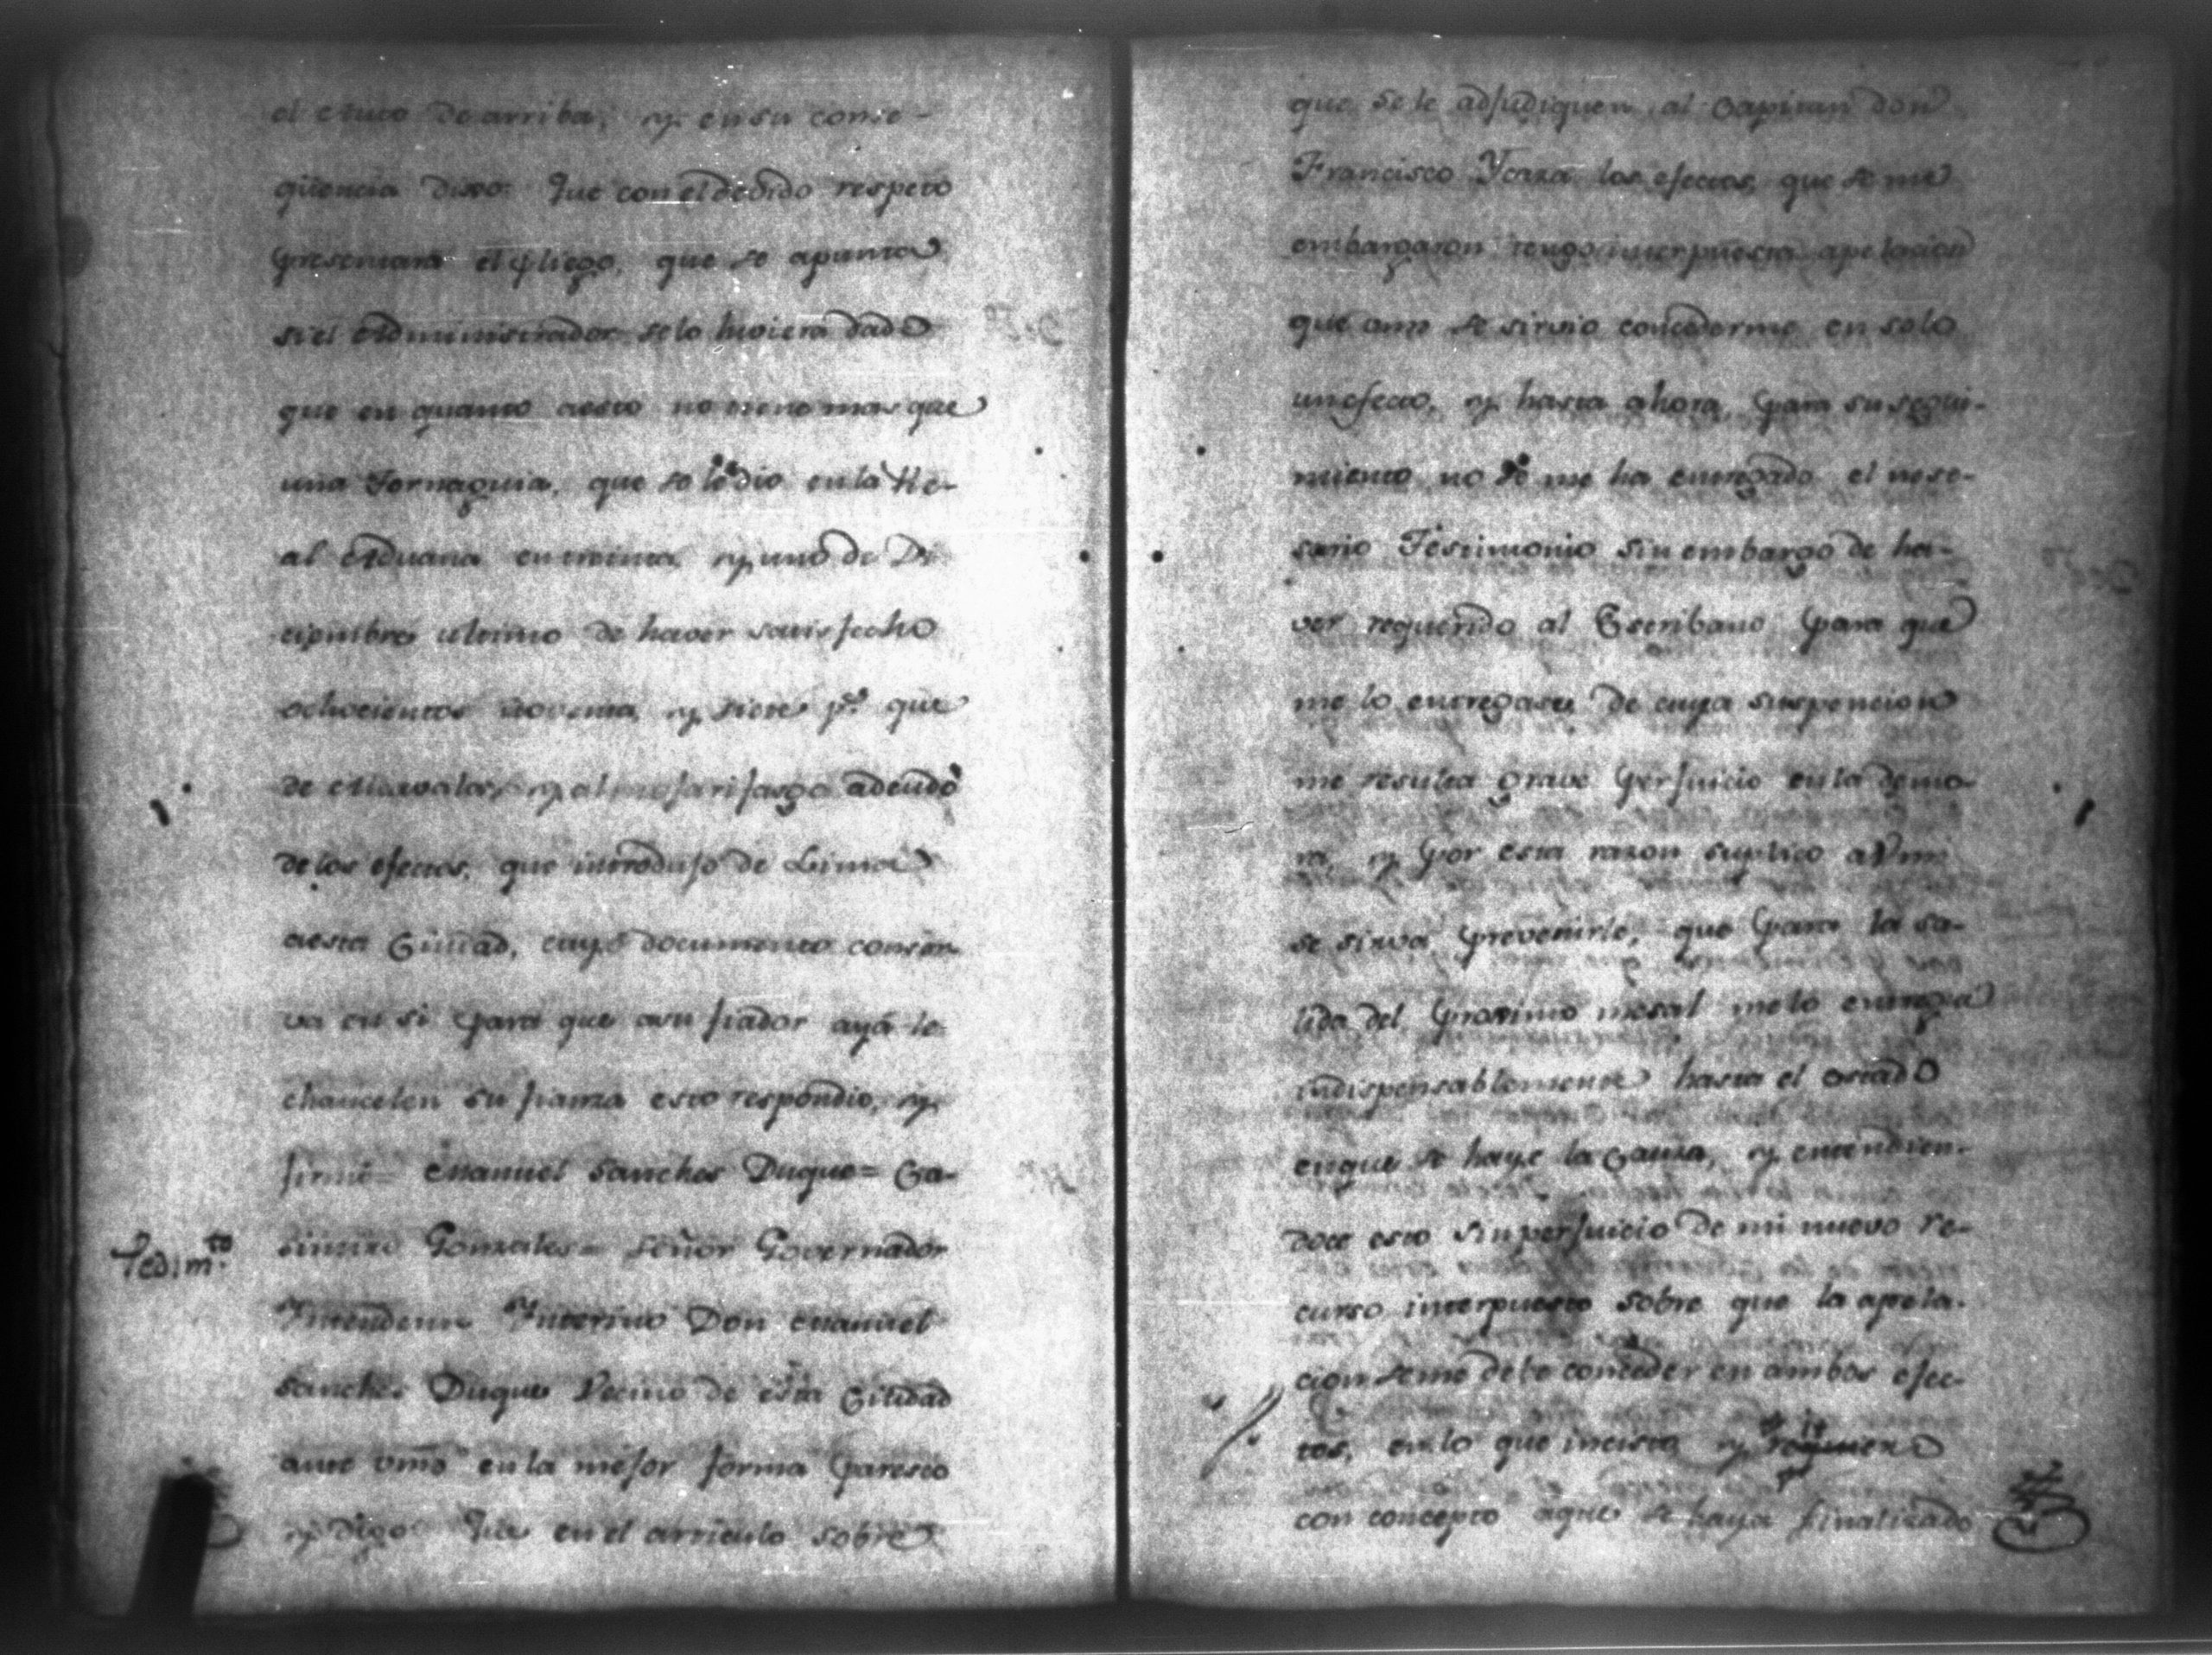 el Auto de arriba, y en su conse-
qüencia dixo: Que con el devido respeto
presentara el pliego, que se apunta
si el Administrador se lo huviera dado
que en quanto aesto no tiene mas que
una Tornaguia, que se le dio en la Re-
al Aduana en treinta, y uno de Di-
ciembre ultimo de haver satisfecho
ochocientos noventa, y siete p.s que
de Alcavalas, y almojarifasgo adeudó
de los efectos, que introdujo de Lima
aesta Ciudad, cuyo documento conser-
va en si para que asu fiador ayá le
chancelen su fianza esto respondio, y
firmó= Manuel Sanches Duque= Ca-
simiro Gonzales= Señor Governador
Pedim.to
Intendente Interino Don Manuel
Sanches Duque Vecino de esta Ciudad
ante vmd en la mejor forma paresco
y digo Que en el articulo sobre
que se le adjudiquen al Capitan don
Francisco Ycaza los efectos, que se me
embargaron tengo interpuesta apelacion
que vmd se sirvio concederme en solo
un efecto, y hasta ahora, para su segui-
miento no se me ha entregado el nese-
sario Testimonio sin embargo de ha-
ver requerido al Escribano para que
me lo entregase, de cuya suspencion
me resulta grave perjuicio en la demo-
ra, y por esta razon suplico a Vmd
se sirva prevenirle, que para la sa-
lida del proximo mesal me lo entrega
indispensablemente hasta el estado
en que se haye la Causa, y entendien-
dose esto sin perjuicio de mi nuevo re-
curso interpuesto sobre que la apela-
cion se me debe conceder en ambos efec-
tos, en lo que incisto y
con concepto aque se haya finalizado